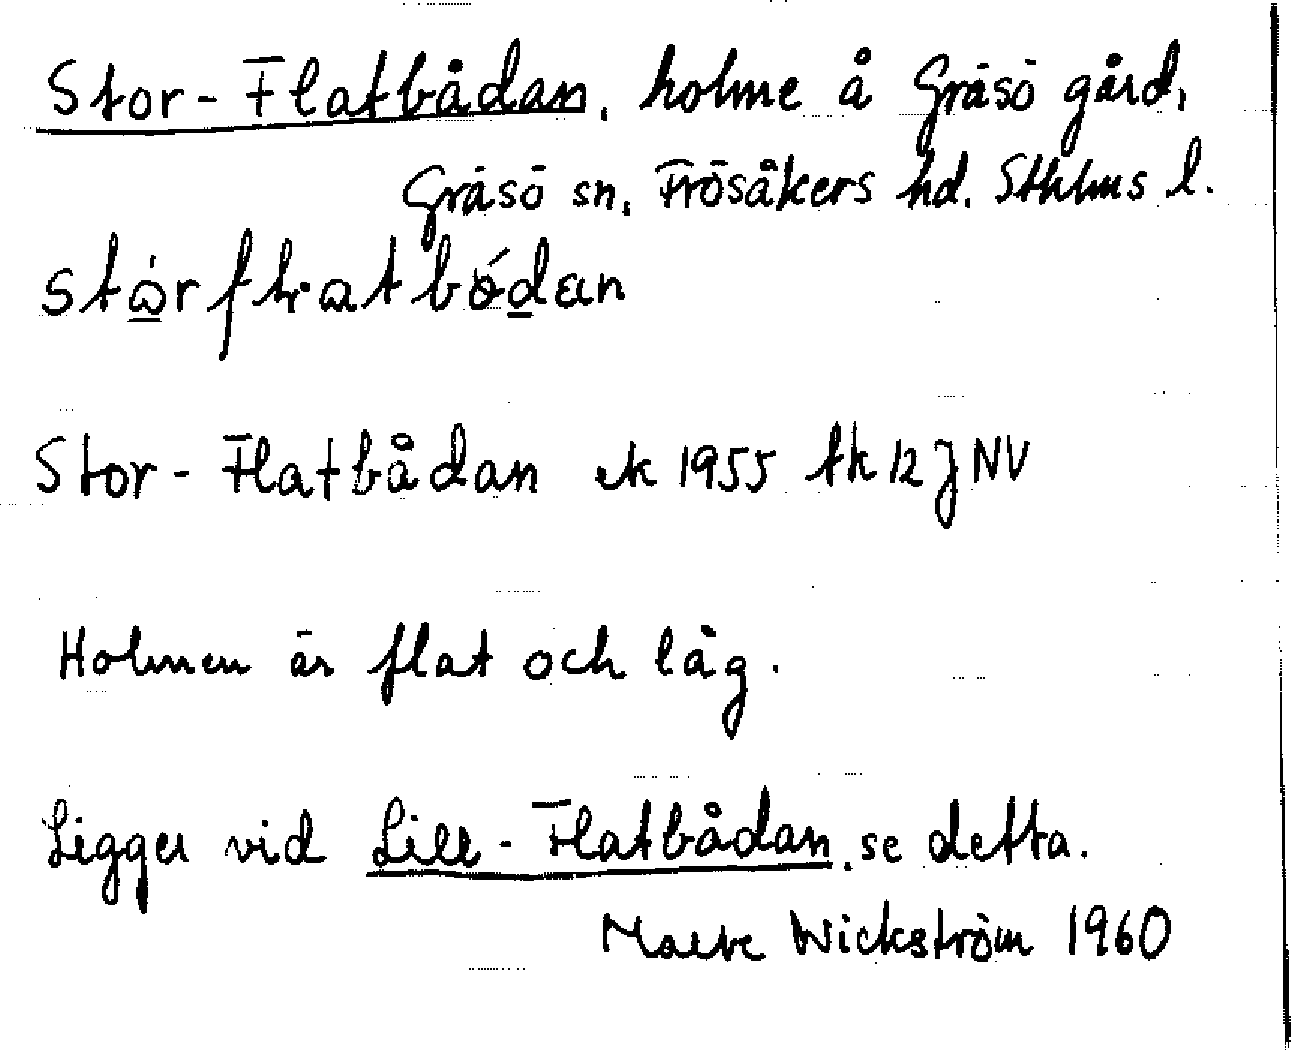 Stor-Flatbådan, holme å Gräsö gård,
Gräsö sn, Frösåkers hd. Sthlms l.
Stor-Flatbådan ek 1955 tk 12 J NV
Holmen är flat och låg.
Ligger vid Lill-Flatbådan, se detta.
Wickström 1960